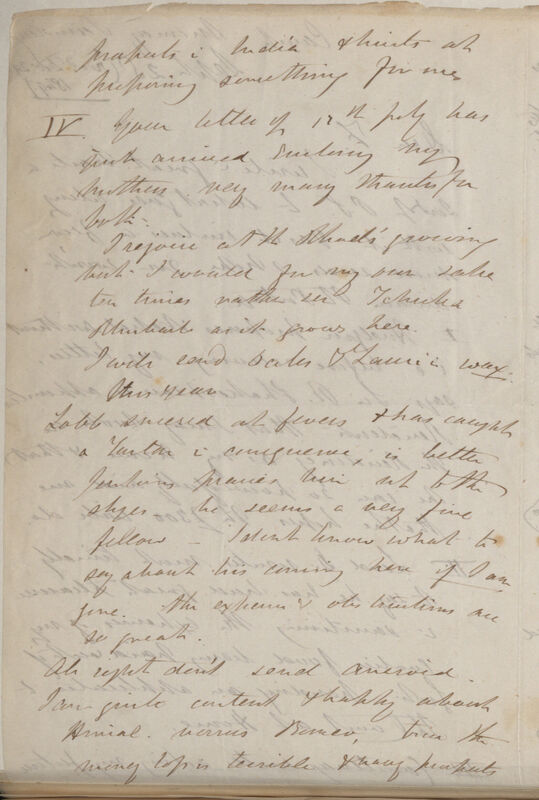 prospects in India & hints at
preparing something for me.
IV. Your letter of 12th July has
just arrived enclosing my
mothers. very many thanks for
both.
I rejoice at the Rhod's growing
but I would for my own sake
ten times rather see Tchuka
Rhubarb as it grows here.
I will send Scales & Laurie wax.
this year
Lobb sneered at fevers & has caught
a Tartar in consequence, is better
Jenkins praises him up to the
skyes he seems a very fine
fellow — I dont know what to
say about his coming here if I am
gone. the expense & obstructions are
so great.
All right don't send aneroid.
I am quite content & happy about
Himal. versus Borneo, true the
money loss is terrible & many prospects